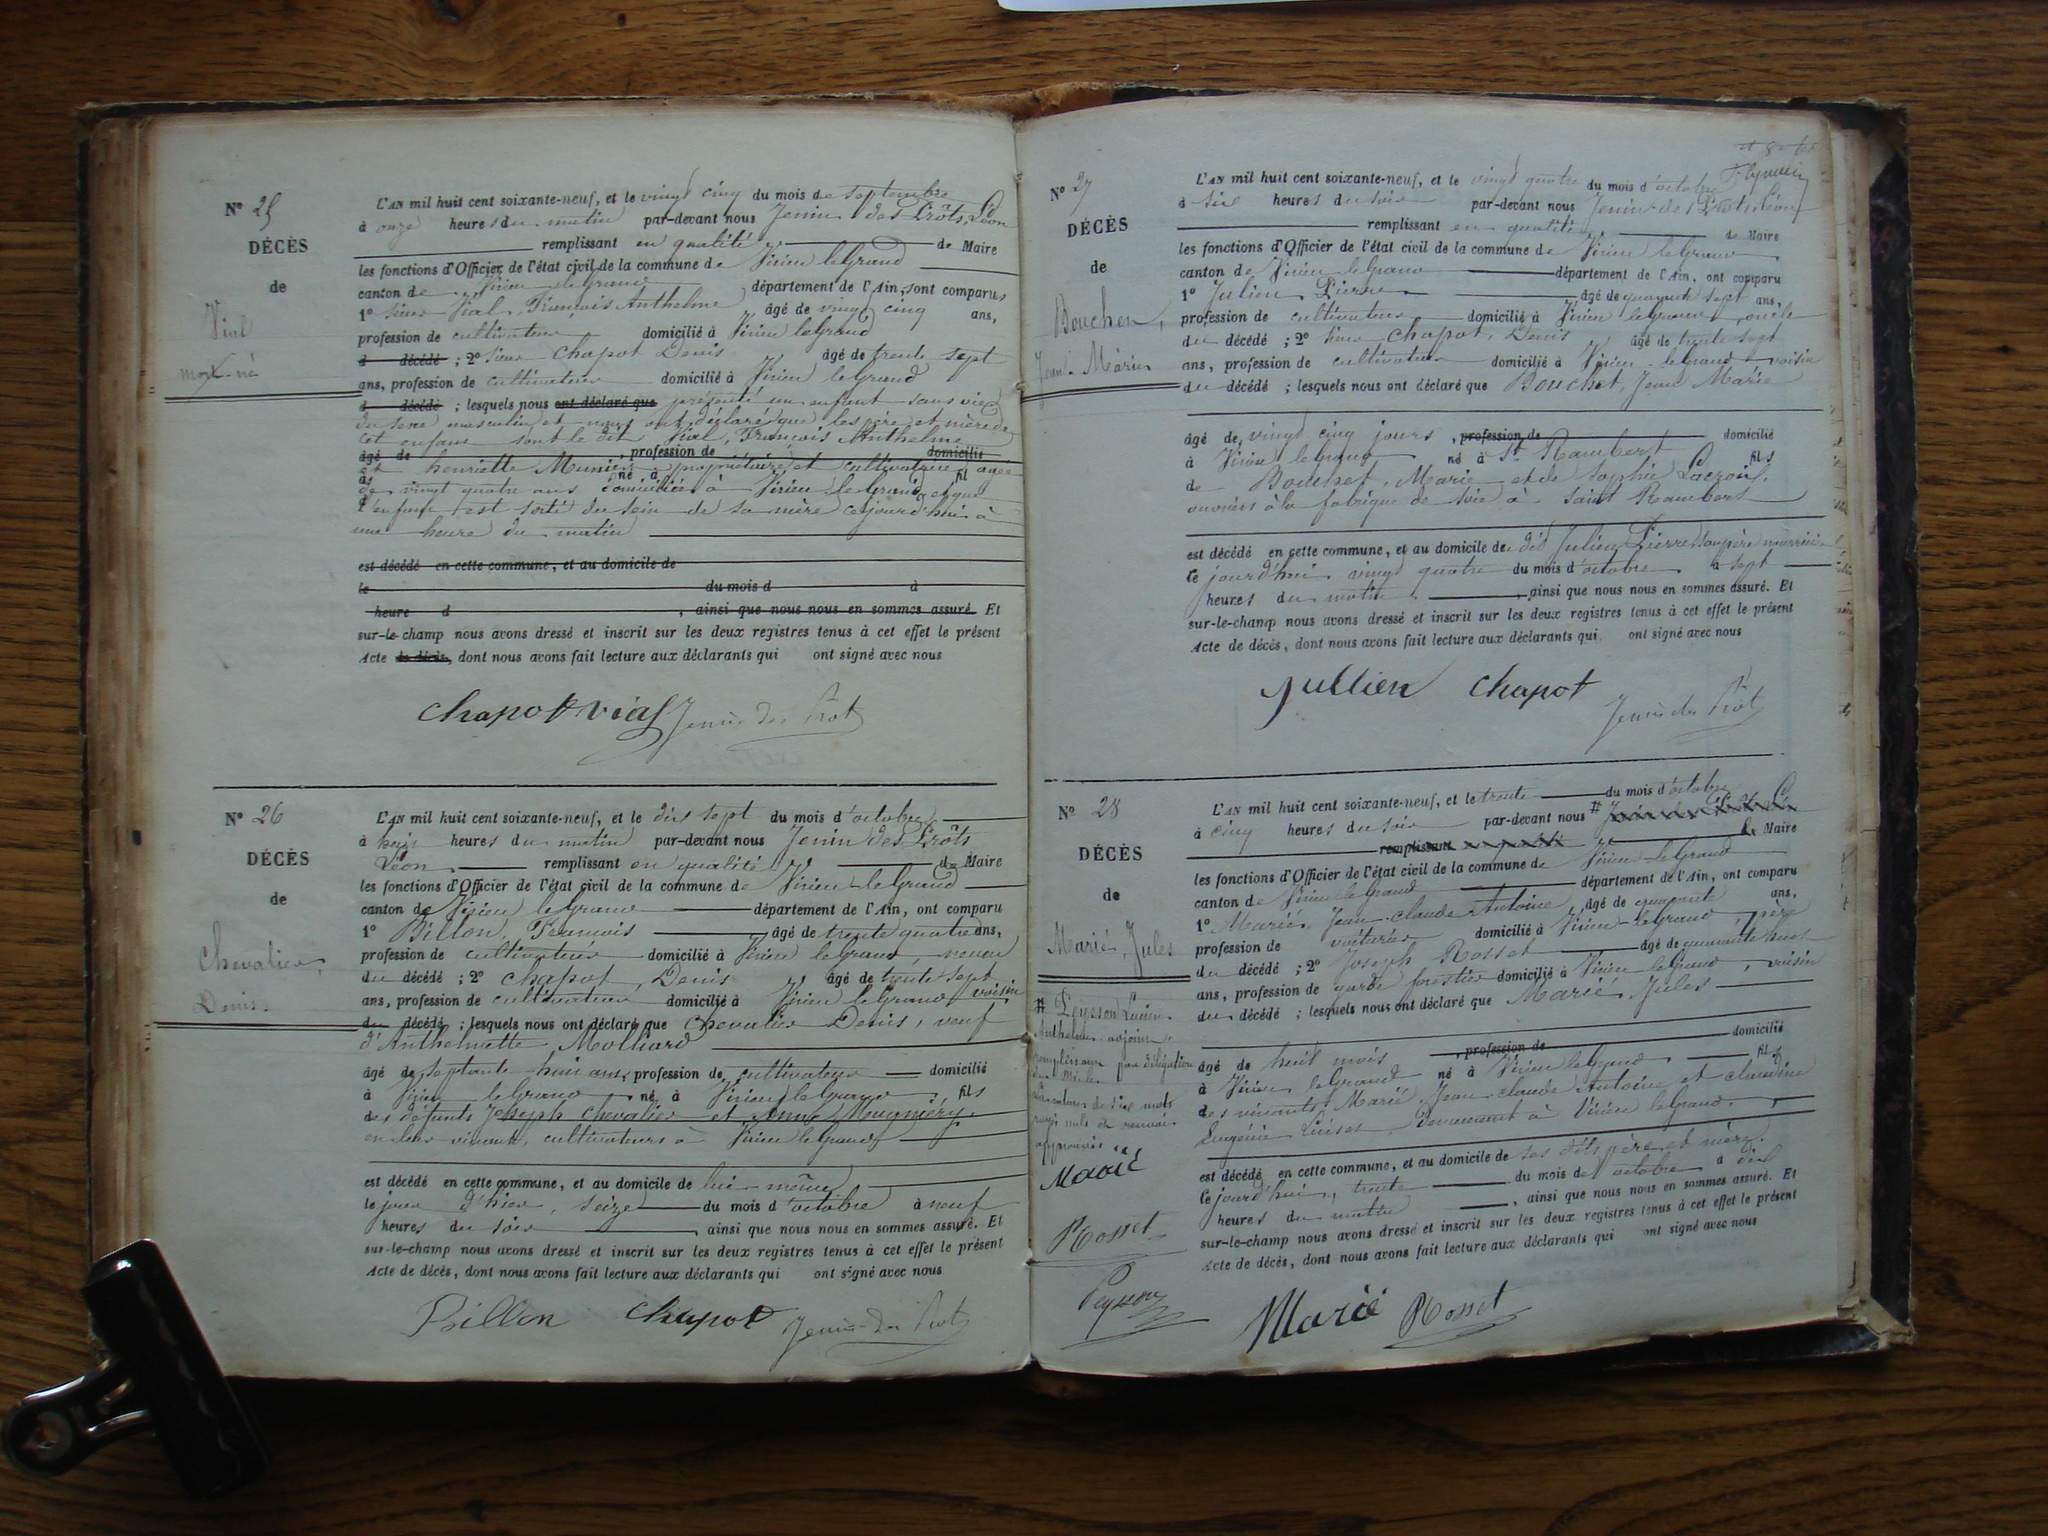 N° 25
DÉCÈS
de
Vial
mort-né
L'AN mil huit cent soixante-neuf, et le vingt cinq du mois de septembre
à onze heures du matin par-devant nous Jenin des Prôts, Léon
remplissant en qualité de Maire
les fonctions d'Officier de l'état civil de la commune de Virieu le Grand
canton de Virieu le Grand département de l'Ain, sont comparus
1° sieur Vial, François Anthelme âgé de vingt cinq ans,
profession de cultivateur domicilié à Virieu le Grand
d décédé ; 2° sieur Chapot Denis âgé de trente sept
ans, profession de cultivateur domicilié à Virieu le Grand
d décédé ; lesquels nous ont déclaré que présenté un enfant sans vie
du sexe masculin, et nous ont déclaré que les père et mère de
cet enfant sont le dit Vial, François Anthelme
âgé de , profession de domicilié
et henriette Munier, propriétaire et cultivatrice agée
à né à fil
de vingt quatre ans domiciliée à Virieu le Grand, et que
d
l'enfant est sorti du sein de sa mère cejourd'hui à
une heure du matin
est décédé en cette commune, et au domicile de
le du mois d d
heure d , ainsi que nous nous en sommes assuré. Et
sur-le-champ nous avons dressé et inscrit sur les deux registres tenus à cet effet le présent
Acte de décès, dont nous avons fait lecture aux déclarants qui ont signé avec nous
Chapot vial Jenin des Prôts
N° 26
DÉCÈS
de
Chevalier,
Denis.
L'AN mil huit cent soixante-neuf, et le dix sept du mois d'octobre
à huit heures du matin par-devant nous Jenin des Prôts
Léon remplissant en qualité de Maire
les fonctions d'Officier de l'état civil de la commune de Virieu-le Grand
canton de Virieu le Grand département de l'Ain, ont comparu
1° Billon, François âgé de trente quatre ans,
profession de cultivateur domicilié à Virieu le Grand, neveu
du décédé ; 2° Chapot, Denis âgé de trente sept
ans, profession de cultivateur domicilié à Virieu le Grand voisin
du décédé ; lesquels nous ont déclaré que Chevalier Denis, veuf
d'Anthelmette Molliard
âgé de septante huit ans, profession de cultivateur domicilié
à Virieu le Grand né à Virieu le Grand, fils
des défunts Joseph Chevalier et Anne
en leur vivant, cultivateurs à Virieu le Grand
est décédé en cette commune, et au domicile de lui-même
le jour d'hier, seize du mois d'octobre à neuf
heures du soir , ainsi que nous nous en sommes assuré. Et
sur-le-champ nous avons dressé et inscrit sur les deux registres tenus à cet effet le présent
Acte de décès, dont nous avons fait lecture aux déclarants qui ont signé avec nous
Billon Chapot Jenin des Prôts
N° 27
DÉCÈS
de
Bouchet,
Jean-Marie
L'AN mil huit cent soixante-neuf, et le vingt quatre du mois d'octobre
à six heures du soir par-devant nous Jenin des Prôts, Léon
remplissant en qualité de Maire
les fonctions d'Officier de l'état civil de la commune de Virieu le Grand
canton de Virieu le Grand département de l'Ain, ont comparu
1° Julien Pierre âgé de quarante sept ans,
profession de cultivateur domicilié à Virieu le Grand, oncle
du décédé ; 2° sieur Chapot, Denis âgé de trente sept
ans, profession de cultivateur domicilié à Virieu-le Grand voisin
du décédé ; lesquels nous ont déclaré que Bouchet, Jean Marie
âgé de vingt cinq jours , profession de domicilié
à Virieu le Grand né à St Rambert fils
de Bouchet, Marie et de Sophie Lacroix,
ouvriers à la fabrique de soie à Saint Rambert
est décédé en cette commune, et au domicile de dit Julien Pierre, son père nourricier
le jourd'hui vingt quatre du mois d'octobre à sept
heures du matin , ainsi que nous nous en sommes assuré. Et
sur-le-champ nous avons dressé et inscrit sur les deux registres tenus à cet effet le présent
Acte de décès, dont nous avons fait lecture aux déclarants qui ont signé avec nous
Jullien Chapot
Jenin des Prôts
N° 28
DÉCÈS
de
Marié, Jules
# Peysson Lucien
Anthelme adjoint
remplissant par délégation
du Maire
ratures de dix mots
rayés nuls et renvoi
approuvés
Marié
Rosset
Peysson
L'AN mil huit cent soixante-neuf, et le trente du mois d'octobre
à cinq heures du soir par-devant nous #
remplissant en qualité de Maire
les fonctions d'Officier de l'état civil de la commune de Virieu-le Grand
canton de Virieu le Grand département de l'Ain, ont comparu
1° Marié, Jean-claude Antoine, âgé de quarante ans,
profession de voiturier domicilié à Virieu le Grand, père
du décédé ; 2° Joseph Rosset âgé de quarante huit
ans, profession de garde forestier domicilié à Virieu le Grand, voisin
du décédé ; lesquels nous ont déclaré que Marié Jules
âgé de huit mois , profession de domicilié
à Virieu le Grand né à Virieu le Grand, fils
des vivants Marié, Jean-claude Antoine et claudine
Eugénie demeurant à Virieu le Grand,
est décédé en cette commune, et au domicile de ses dits père et mère,
le jourd'hui, trente du mois de octobre à dix
heures du matin , ainsi que nous nous en sommes assuré. Et
sur-le-champ nous avons dressé et inscrit sur les deux registres tenus à cet effet le présent
Acte de décès, dont nous avons fait lecture aux déclarants qui ont signé avec nous
Marié Rosset